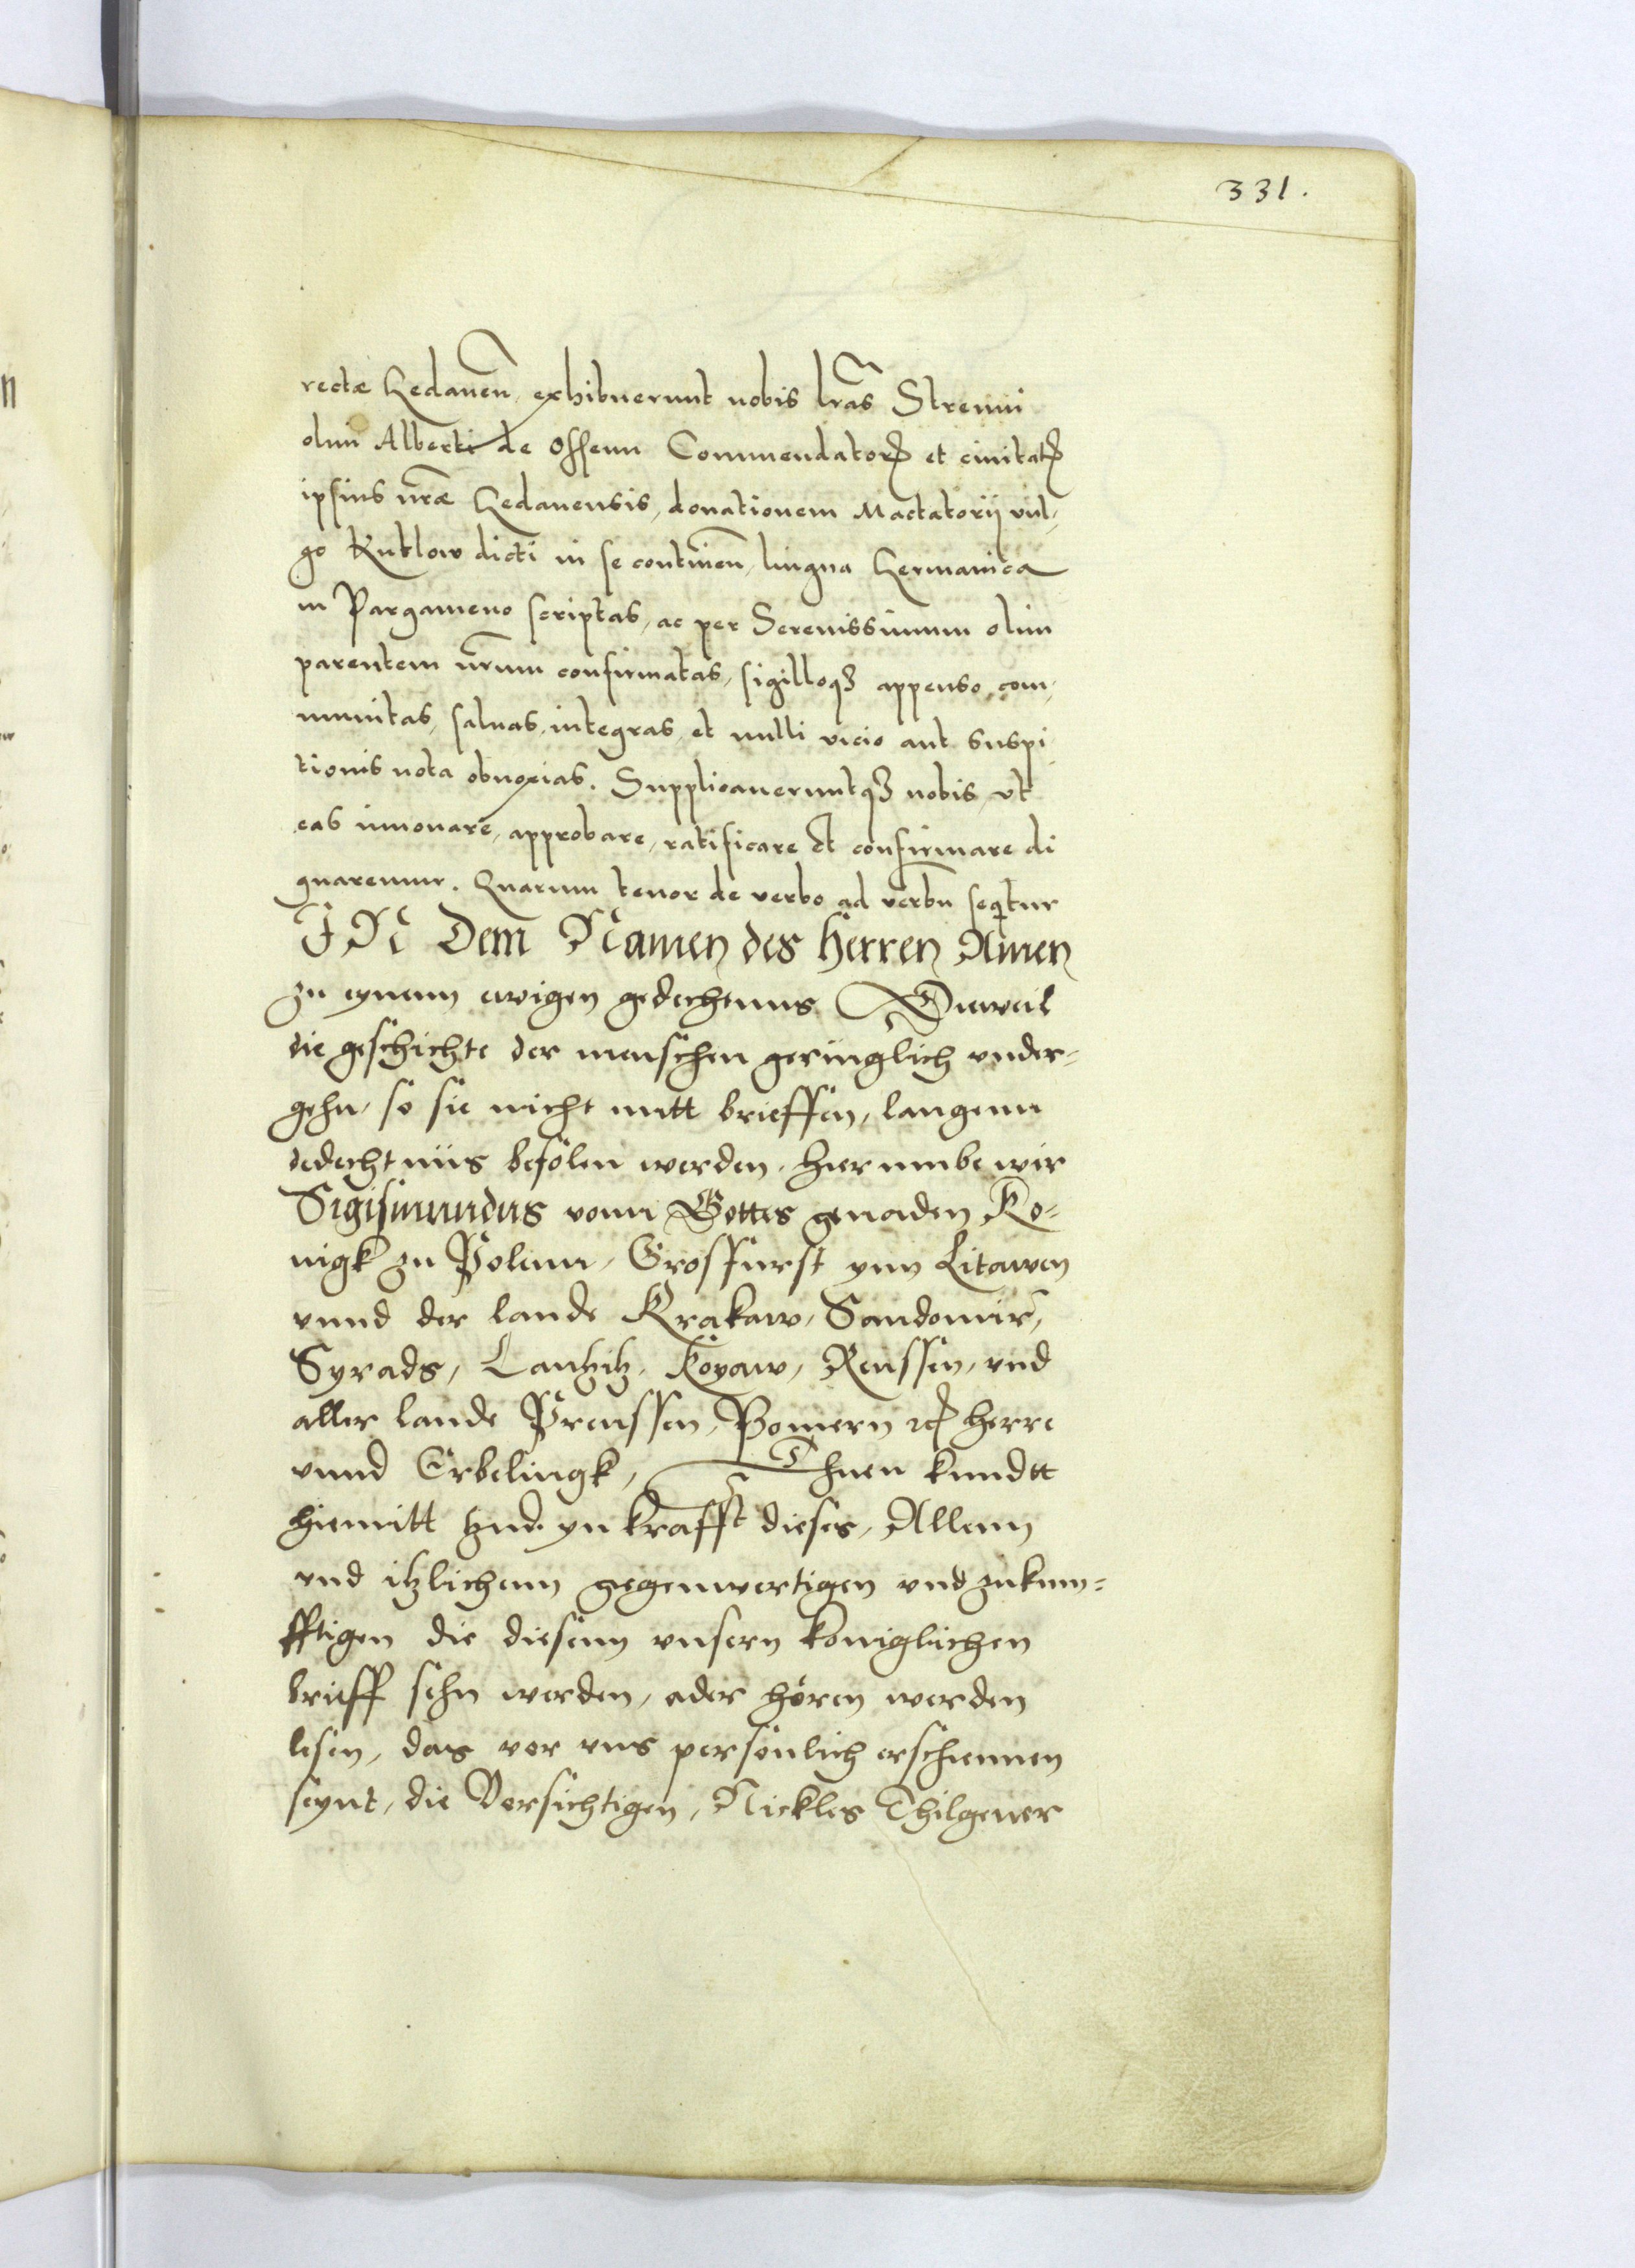 331.
rectæ Gedaneñ exhibuerunt nobis lr̃as Strenui
olim Alberti de Ossenn Commendatorꝭ et ciuitatꝭ
ipsius nr̃æ Gedanensis, donationem Mactatorij vul,
go Kuttlow dicti in se contineñ, lingua Germanica
in Pargameno scriptas, ac per Serenissimum olim
parentem nr̃um confirmatas, sigilloqꝫ appenso com,
munitas, saluas, integras, et nulli vicio aut suspi
tionis nota obnoxias. Supplicaueruntqꝫ nobis, vt
eas innouare, approbare, ratificare et confirmare di
gnaremur. Quarum tenor de verbo ad verbũ seqitur
IN Dem Namen des Herren Amen
zu eynem ewigen gedechtnus Dieweil
die geschichte der menschen geringlich vnder=
gehn, so sie nicht mitt brieffen, langenn
dedechtnüs befolen werden, hierumbe wir
Sigismundus vonn Gottes genaden Ko=
nigk zu Polenn, Grosfurst ynn Litawen
vnnd der lande Krakaw, Sandomir,
Syrads, Lantzitz, Koyaw, Reussen, vnd
aller lande Preussen, Pomern ꝛcꝭ herre
vnnd Erbelingk, Thuen kundtt
hiemitt vnd yn krafft dieses, Allenn
vnd itzlichenn gegenwertigen vnd zukum=
fftigen die diesenn vnsern koniglichen
brieff sehn werden, ader hören werden
lesen, das vor vns persönlich erschiennen
seynt, die Vorsichtigen, Nickles Thilgener